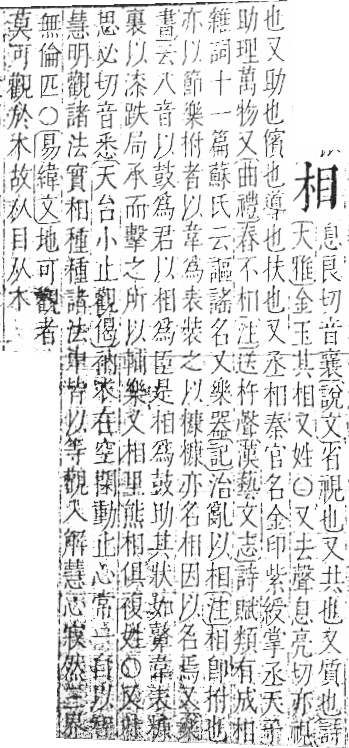 相
息良切音襄說文省視也又共也又質也詩
大雅金玉其相又姓○又去聲息亮切亦視
也又助也儐也導也扶也又丞相秦官名金印紫綬掌丞天子
助理萬物又曲禮舂不相注送杵聲漢藝文志詩賦類有成相
雜詞十一篇蘇氏云謳謠名又樂器記治亂以相注相卽拊也
亦以節樂拊者以韋爲表裝之以糠糠亦名相因以名焉又樂
書云八音以鼓爲君以相爲臣是相爲鼓助其狀如鼙韋表糠
裏以漆趺局承而擊之所以輔樂又相里熊相俱複姓○又叶
思必切音悉天台小止觀偈衲衣在空閑動止心常一自以智
慧明觀諸法實相種種諸法中皆以等觀入解慧心寂然三界
無倫匹○易緯文地可觀者
莫可觀於木故从目从木